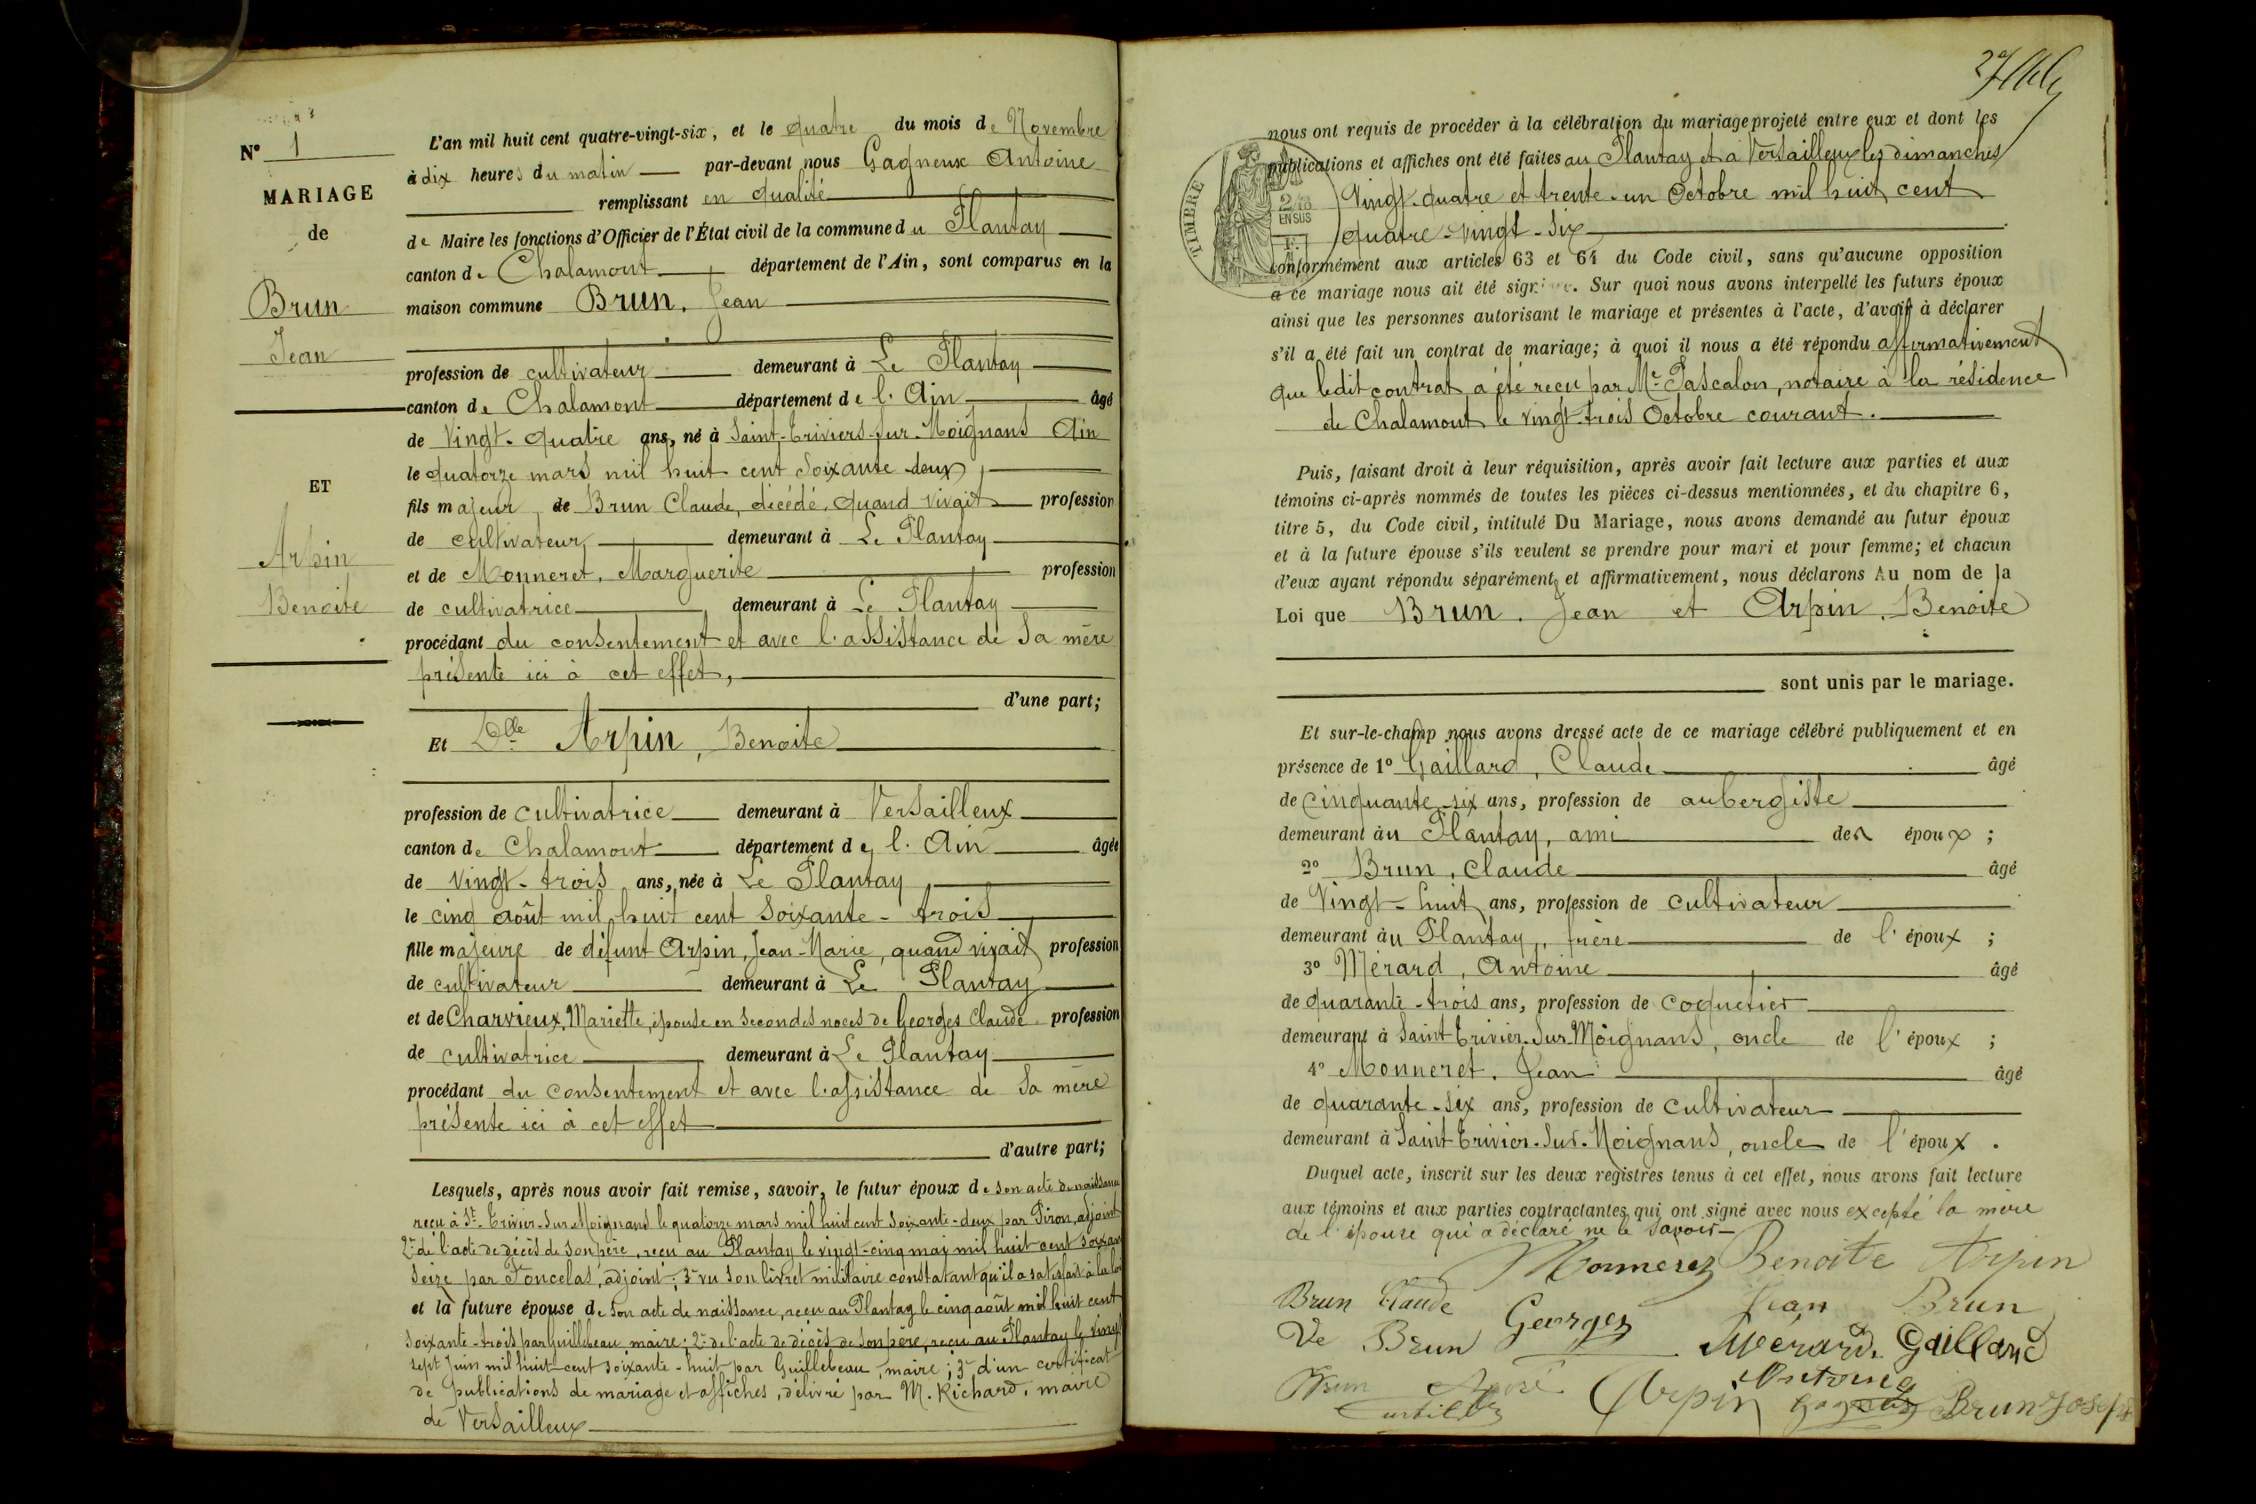 N° 1
MARIAGE
de
Brun
Jean
ET
Arpin
Benoite
L'an mil huit cent quatre-vingt-six, et le quatre du mois de Novembre
à dix heures du matin par-devant nous Gagneux Antoine
remplissant en qualité
de Maire les fonctions d'Officier de l'État civil de la commune du Plantay
canton de Chalamont département de l'Ain, sont comparus en la
maison commune Brun, Jean
profession de cultivateur demeurant à Le Plantay
canton de Chalamont département de l'Ain âgé
de vingt-quatre ans, né à Saint-Triviers-sur-Moignans Ain
le quatorze mars mil huit cent soixante deux,
fils majeur de Brun Claude, décédé, quand vivait profession
de cultivateur demeurant à Le Plantay
et de Monneret, Marguerite profession
de cultivatrice demeurant à Le Plantay
procédant du consentement et avec l'assistance de sa mère
présente ici à cet effet,
d'une part;
Et Dlle Arpin, Benoite
profession de cultivatrice demeurant à Versailleux
canton de Chalamont département de l'Ain âgée
de vingt-trois ans, née à Le Plantay
le cinq août mil huit cent soixante-trois
fille majeure de défunt Arpin, Jean-Marie, quand vivait profession
de cultivateur demeurant à Le Plantay
et de Charvieux, Mariette, épouse en secondes noces de Georges Claude profession
de cultivatrice demeurant à Le Plantay
procédant du consentement et avec l'assistance de sa mère
présente ici à cet effet
d'autre part;
Lesquels, après nous avoir fait remise, savoir, le futur époux de son acte de naissance
reçu à St-Trivier-sur-Moignans le quatorze mars mil huit cent soixante-deux par Piron, adjoint
2° de l'acte de décès de son père, reçu au Plantay le vingt-cinq mai mil huit cent soixante
seize par Foncelas, adjoint; 3° vu son livret militaire constatant qu'il a satisfait à la loi
et la future épouse de son acte de naissance, reçu au Plantay le cinq août mil huit cent
soixante-trois par Guillebeau, maire; 2° de l'acte de décès de son père, reçu au Plantay le vingt
sept juin mil huit-cent soixante-huit par Guillebeau, maire; 3° d'un certificat
de publications de mariage et affiches, délivré par M. Richard, maire
de Versailleux
nous ont requis de procéder à la célébration du mariage projeté entre eux et dont les
publications et affiches ont été faites au Plantay et à Versailleux les dimanches
vingt-quatre et trente-un Octobre mil huit cent
quatre-vingt-six
conformément aux articles 63 et 64 du Code civil, sans qu'aucune opposition
à ce mariage nous ait été signifiée. Sur quoi nous avons interpellé les futurs époux
ainsi que les personnes autorisant le mariage et présentes à l'acte, d'avoir à déclarer
s'il a été fait un contrat de mariage; à quoi il nous a été répondu affirmativement
que ledit contrat a été reçu par Me Pascalon, notaire à la résidence
de Chalamont le vingt-trois Octobre courant.
Puis, faisant droit à leur réquisition, après avoir fait lecture aux parties et aux
témoins ci-après nommés de toutes les pièces ci-dessus mentionnées, et du chapitre 6,
titre 5, du Code civil, intitulé Du Mariage, nous avons demandé au futur époux
et à la future épouse s'ils veulent se prendre pour mari et pour femme; et chacun
d'eux ayant répondu séparément et affirmativement, nous déclarons Au nom de la
Loi que Brun, Jean et Arpin, Benoite
sont unis par le mariage.
Et sur-le-champ nous avons dressé acte de ce mariage célébré publiquement et en
présence de 1° Gaillard, Claude âgé
de cinquante-six ans, profession de aubergiste
demeurant au Plantay, ami des époux;
2° Brun, Claude âgé
de vingt-huit ans, profession de cultivateur
demeurant au Plantay, frère de l'époux;
3° Mérard, Antoine âgé
de quarante-trois ans, profession de coquetier
demeurant à Saint-Trivier-sur-Moignans, oncle de l'époux;
4° Monneret, Jean âgé
de quarante-six ans, profession de cultivateur
demeurant à Saint-Trivier-sur-Moignans, oncle de l'époux.
Duquel acte, inscrit sur les deux registres tenus à cet effet, nous avons fait lecture
aux témoins et aux parties contractantes qui ont signé avec nous excepté la mère
de l'épouse qui a déclaré ne le savoir
Monneret Benoite Arpin
Brun Claude Georges Jean Brun
Ve Brun Mérard Gaillard
Brun Antoine
Arpin Gagneux Brun Joseph
TIMBRE
EN SUS